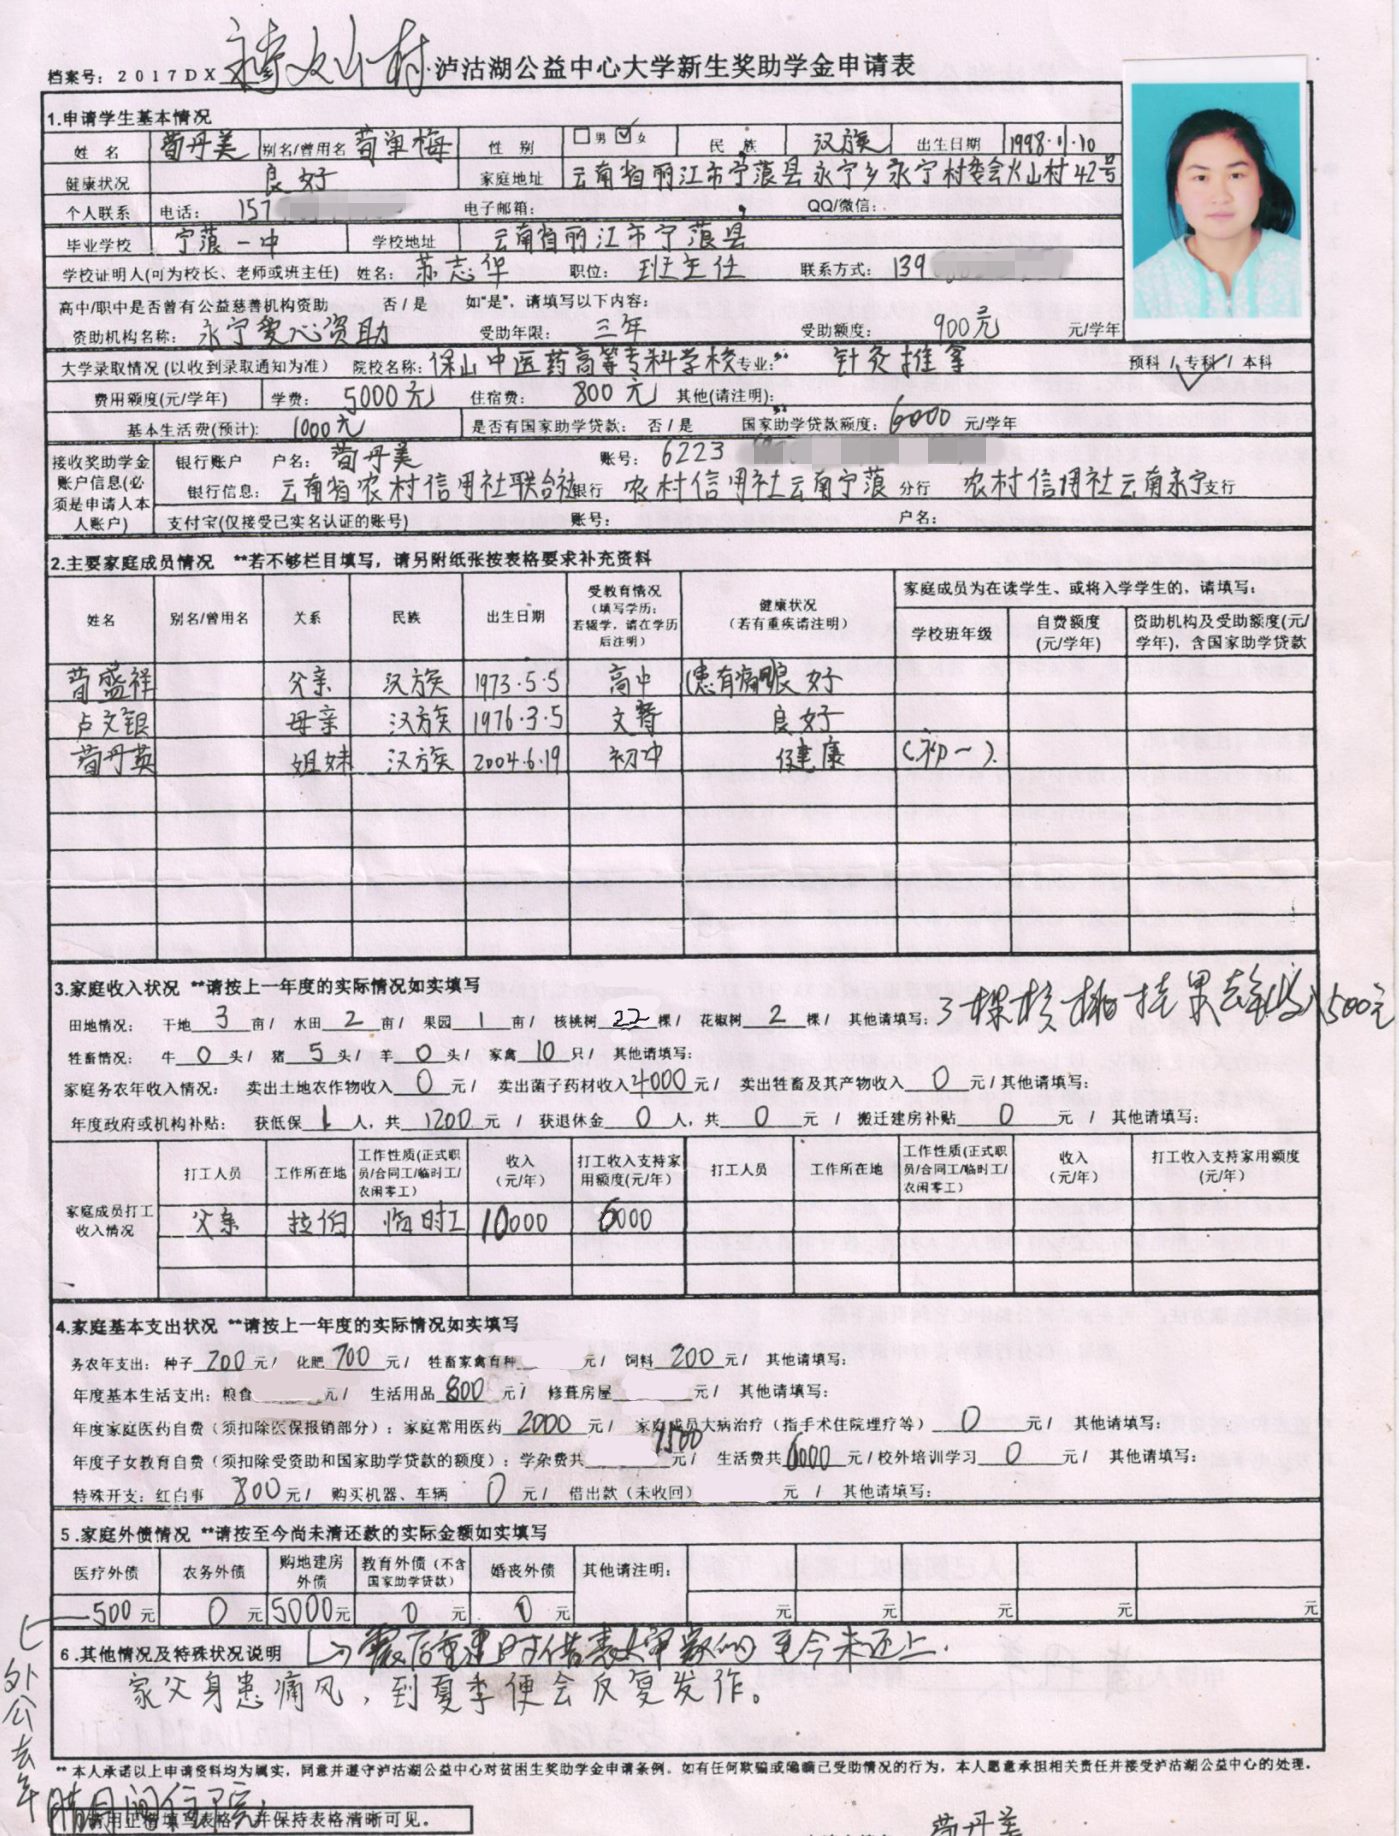 档案号：2017DX 泸沽湖公益中心大学新生奖助学金申请表
1.申请学生基本情况
姓 名 荀丹美 别名/曾用名 荀单梅 性 别 □男 ☑女 民 族 汉族 出生日期 1998.11.10
健康状况 良好 家庭地址 云南省丽江市宁蒗县永宁乡永宁村委会火山村42号
个人联系 电话：157 电子邮箱： QQ/微信：
毕业学校 宁蒗一中 学校地址 云南省丽江市宁蒗县
学校证明人(可为校长、老师或班主任) 姓名：苏志华 职位：班主任 联系方式：139
高中/职中是否曾有公益慈善机构资助 否 / 是 如“是”，请填写以下内容：
资助机构名称：永宁爱心资助 受助年限：三年 受助额度：900元 元/学年
大学录取情况（以收到录取通知为准） 院校名称：保山中医药高等专科学校 专业： 针灸推拿 预科 / 专科✓/ 本科
费用额度(元/学年) 学费：5000元 住宿费：800元 其他(请注明)：
基本生活费(预计)：1000元 是否有国家助学贷款： 否 / 是 国家助学贷款额度：6000 元/学年
接收奖助学金账户信息(必须是申请人本人账户) 银行账户 户名：荀丹美 账号：6223
银行信息：云南省农村信用社联合社银行 农村信用社云南宁蒗 分行 农村信用社云南永宁支行
支付宝(仅接受已实名认证的账号) 账号： 户名：
2.主要家庭成员情况 **若不够栏目填写，请另附纸张按表格要求补充资料
姓名 别名/曾用名 关系 民族 出生日期 受教育情况（填写学历；若辍学，请在学历后注明） 健康状况（若有重疾请注明） 家庭成员为在读学生、或将入学学生的，请填写：
学校班年级 自费额度(元/学年) 资助机构及受助额度(元/学年)，含国家助学贷款
荀盛祥 父亲 汉族 1973.5.5 高中 良好
卢文银 母亲 汉族 1976.3.5 文盲 良好
荀丹英 姐妹 汉族 2004.6.19 初中 健康 (初一)
3.家庭收入状况 **请按上一年度的实际情况如实填写
田地情况： 干地 3 亩/ 水田 2 亩/ 果园 1 亩/ 核桃树 22 棵/ 花椒树 2 棵/ 其他请填写：3棵核桃挂果去年收入500元
牲畜情况： 牛 0 头/ 猪 5 头/ 羊 0 头/ 家禽 10 只/ 其他请填写：
家庭务农年收入情况： 卖出土地农作物收入 0 元/ 卖出菌子药材收入 4000 元/ 卖出牲畜及其产物收入 0 元/ 其他请填写：
年度政府或机构补贴： 获低保 1 人，共 1200 元 / 获退休金 0 人，共 0 元 / 搬迁建房补贴 0 元 / 其他请填写：
家庭成员打工收入情况 打工人员 工作所在地 工作性质(正式职员/合同工/临时工/农闲零工) 收入(元/年) 打工收入支持家用额度(元/年) 打工人员 工作所在地 工作性质(正式职员/合同工/临时工/农闲零工) 收入(元/年) 打工收入支持家用额度(元/年)
父亲 拉伯 临时工 10000 6000
4.家庭基本支出状况 **请按上一年度的实际情况如实填写
务农年支出： 种子 200 元/ 化肥 700 元/ 牲畜家禽育种 元/ 饲料 200 元/ 其他请填写：
年度基本生活支出：粮食 元/ 生活用品 800 元/ 修葺房屋 元/ 其他请填写：
年度家庭医药自费（须扣除医保报销部分）：家庭常用医药 2000 元/ 家庭成员大病治疗（指手术住院理疗等） 0 元/ 其他请填写：
年度子女教育自费（须扣除受资助和国家助学贷款的额度）：学杂费共 1500 元/ 生活费共 6000 元/校外培训学习 0 元/ 其他请填写：
特殊开支：红白事 800 元/ 购买机器、车辆 0 元/ 借出款（未收回） 元 / 其他请填写：
5.家庭外债情况 **请按至今尚未清还款的实际金额如实填写
医疗外债 农务外债 购地建房外债 教育外债（不含国家助学贷款） 婚丧外债 其他请注明：
500 元 0 元 5000元 0 元 0 元 元 元 元 元 元
6.其他情况及特殊状况说明 震后重建时借表叔的至今未还上.
家父身患痛风，到夏季便会反复发作。
外公去年腊月间住院
** 本人承诺以上申请资料均为属实，同意并遵守泸沽湖公益中心对贫困生奖助学金申请条例。如有任何欺骗或隐瞒已受助情况的行为，本人愿意承担相关责任并接受泸沽湖公益中心的处理。
请用正楷填写表格，并保持表格清晰可见。
荀丹美